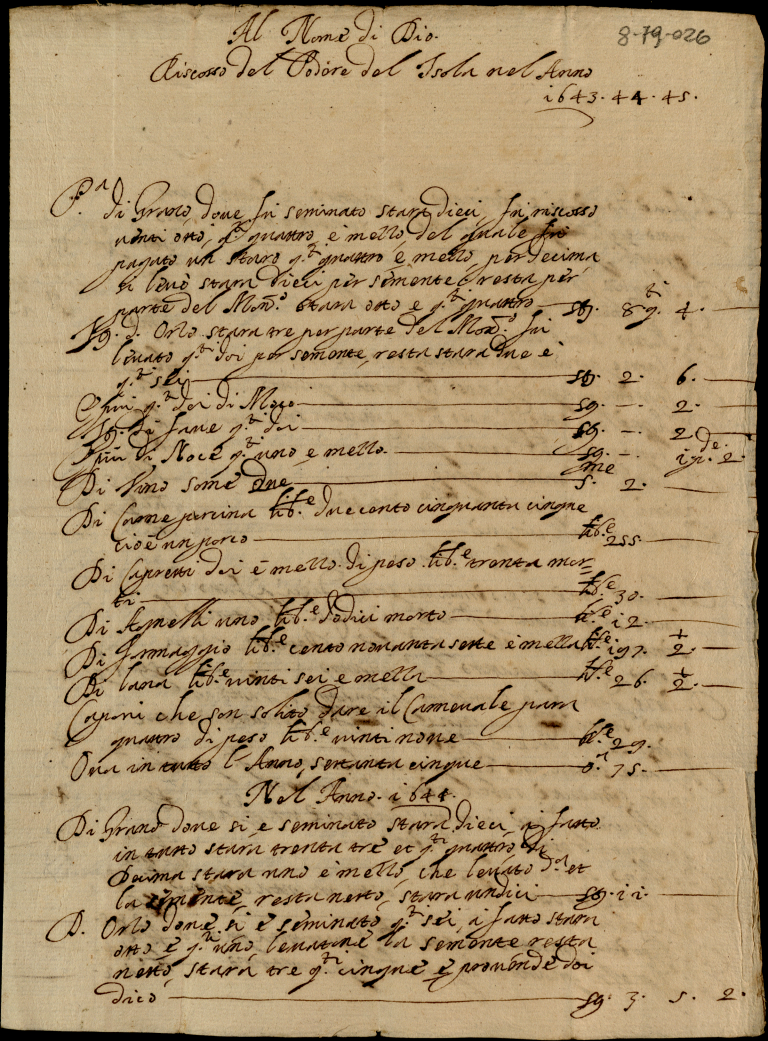 8-79-026
Al Nome di Dio.
Riscosso del Podere del Isola nel Anno
1643. 44. 45.
P.a di Grano, doue fu seminato stara dieci, fu riscosso
uenti otto, q.ti quattro, e mello del quale fu
pagato un staro q.ti quattro e mello, per decima
si leuò stara dieci per semente e resta per
parte del Mon.o stara otto e q.ti quattro st. 8 q.ti 4.
d. Orlo stara tre per parte del Mon.o fu
leuato q.ti doi per semente, resta stara due e
q.ti sei st. 2. 6.
Più q.ti doi di Moco st. - 2.
di faue q.ti doi st. - 2
Più di Noce q.ti uno e mello st. - 1 p.de 2.
Di Vino some due s.me 2.
Di Carne porcina lib.e duecento cinquanta cinque
cioè un porco lib.e 255.
Di Capretti doi e mello di peso lib.e trenta mor=
ti lib.e 30.
Di Agnelli uno lib.e dodici morto lib.e 12.
Di formaggio lib.e cento nouanta sette e mella lib.e 197. 1/2.
Di lana lib.e uinti sei e mella lib.e 26. 1/2.
Caponi che son solito dare il Carneuale para
quattro di peso lib.e uinti noue lib.e 29.
Oua in tutto l'Anno, settanta cinque o.a 75.
Nel Anno. 1644.
Di Grano doue si è seminato stara dieci, à fatto
in tutto stara trenta tre et q.ti quattro, di
Decima stara uno e mello, che leuato d.a et
la semente, resta netto, stara undici st. 11.
D. Orlo doue si è seminato q.ti sei, à fatto stara
otto e q.ti uno, leuatine la semente resta
netto, stara tre q.ti cinque e prouende doi
dico st. 3. 5. 2.